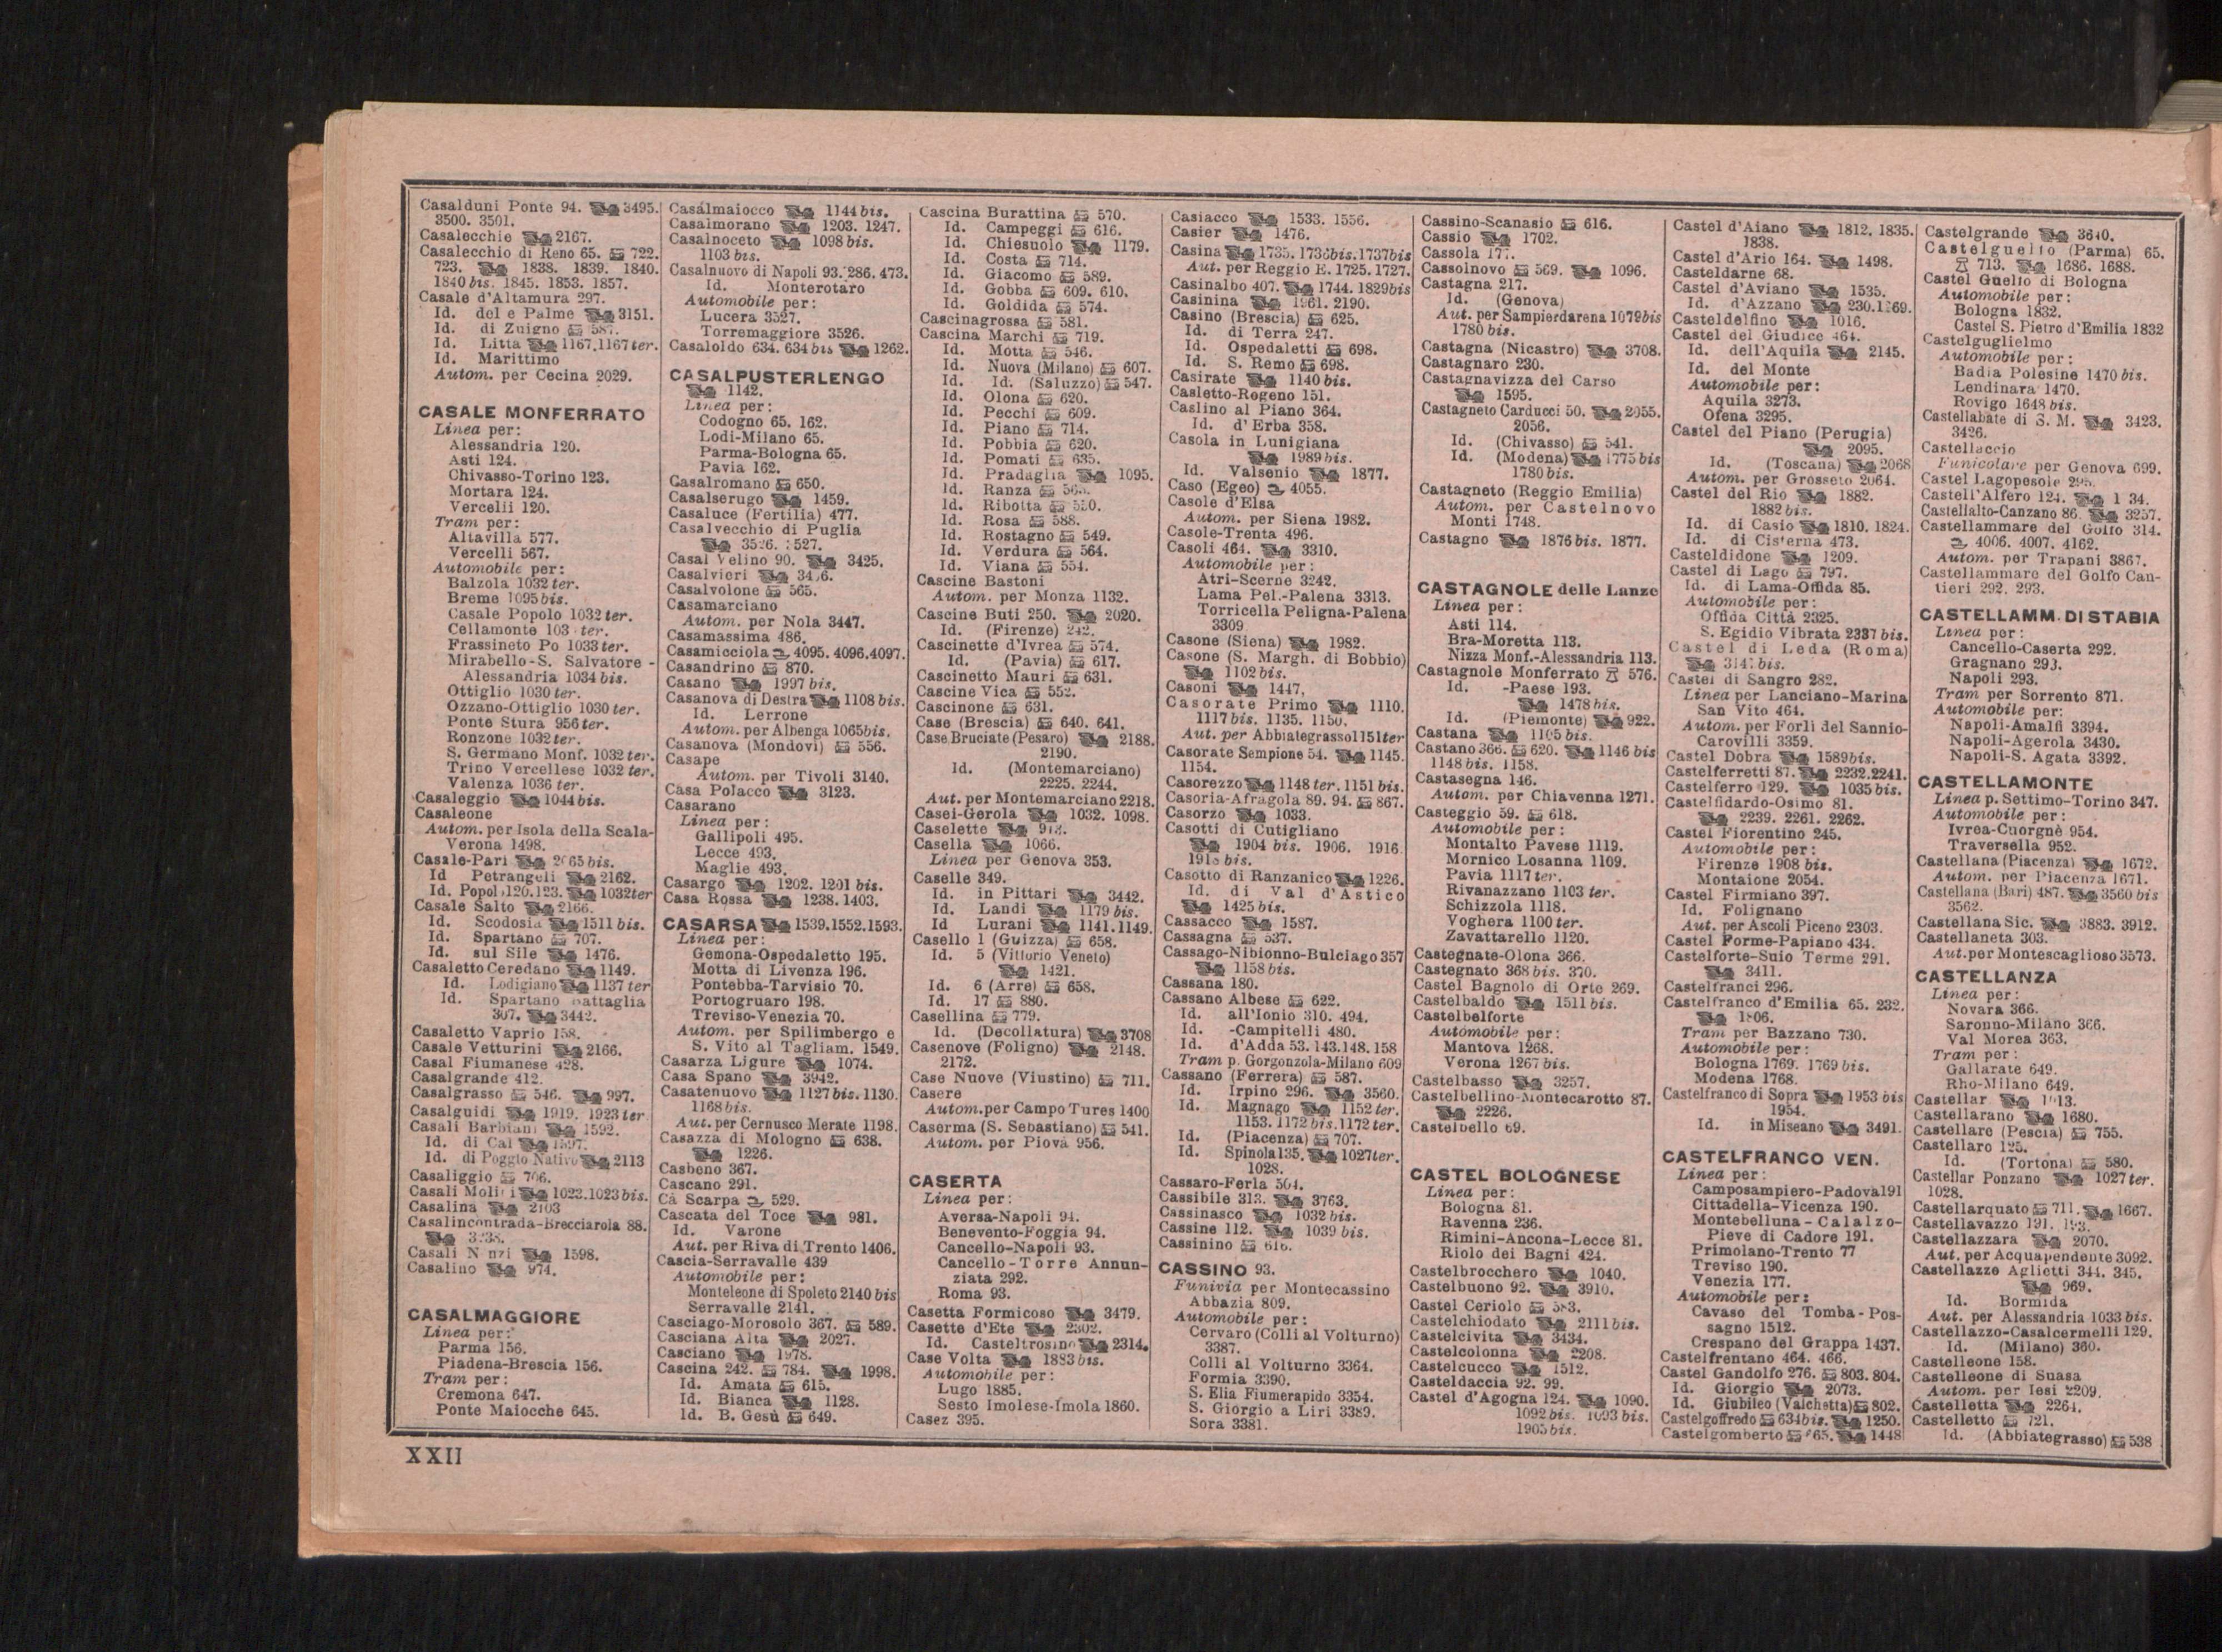 Casalduni Ponte 94. 3495.
3500. 3501.
Casalecchie 2167.
Casalecchio di Reno 65. 722.
723. 1838. 1839. 1840.
1840 bis. 1845. 1853. 1857.
Casale d'Altamura 297.
Id. del e Palme 3151.
Id. di Zuigno
Id. Litta 1167.1167 ter.
Id. Marittimo
Autom. per Cecina 2029.
CASALE MONFERRATO
Linea per:
Alessandria 120.
Asti 124.
Chivasso-Torino 123.
Mortara 124.
Vercelli 120.
Tram per:
Altavilla 577.
Vercelli 567.
Automobile per:
Balzola 1032 ter.
Breme 1095 bis.
Casale Popolo 1032 ter.
Cellamonte ter.
Frassineto Po 1033 ter.
Mirabello-S. Salvatore-
Alessandria 1034 bis.
Ottiglio 1030 ter.
Ozzano-Ottiglio 1030 ter.
Ponte Stura 956 ter.
Ronzone 1032 ter.
S. Germano Monf. 1032 ter.
Trino Vercellese 1032 ter.
Valenza 1036 ter.
Casaleggio 1044 bis.
Casaleone
Autom. per Isola della Scala-
Verona 1498.
Casale-Pari 2065 bis.
Id Petrangeli 2162.
Id. Popol. 120. 123. 1032 ter
Casale Salto 2166.
Id. Scodosia 1511 bis.
Id. Spartano 707.
Id. sul Sile 1476.
Casaletto Ceredano 1149.
Id. Lodigiano 1137 ter
Id. Spartano Battaglia
307. 3442.
Casaletto Vaprio 158.
Casale Vetturini 2166.
Casal Fiumanese 428.
Casalgrande 412.
Casalgrasso 546. 997.
Casalguidi 1919. 1923 ter
Casali Barbiani 1592.
Id. di Cal 1597.
Id. di Poggio Nativo 2113
Casaliggio 706.
Casali Molini 1023.1023 bis.
Casalina 2103
Casalincontrada-Brecciarola 88.
3238.
Casali N nzi 1598.
Casalino 974.
CASALMAGGIORE
Linea per:
Parma 156.
Piadena-Brescia 156.
Tram per:
Cremona 647.
Ponte Maiocche 645.
Casalmaiocco 1144 bis.
Casalmorano 1203. 1247.
Casalnoceto 1098 bis.
1103 bis.
Casalnuovo di Napoli 93. 286. 473.
Id. Monterotaro
Automobile per:
Lucera 3527.
Torremaggiore 3526.
Casaloldo 634. 634 bis 1262.
CASALPUSTERLENGO
1142.
Linea per:
Codogno 65. 162.
Lodi-Milano 65.
Parma-Bologna 65.
Pavia 162.
Casalromano 650.
Casalserugo 1459.
Casaluce (Fertilia) 477.
Casalvecchio di Puglia
3526. 3527.
Casal Velino 90. 3425.
Casalvieri
Casalvolone 565.
Casamarciano
Autom. per Nola 3447.
Casamassima 486.
Casamicciola 4095. 4096.4097.
Casandrino 870.
Casano 1997 bis.
Casanova di Destra 1108 bis.
Id. Lerrone
Autom. per Albenga 1065bis.
Casanova (Mondovì) 556.
Casape
Autom. per Tivoli 3140.
Casa Polacco 3123.
Casarano
Linea per:
Gallipoli 495.
Lecce 493.
Maglie 493.
Casargo 1202. 1201 bis.
Casa Rossa 1238. 1403.
CASARSA 1539.1552.1593.
Linea per:
Gemona-Ospedaletto 195.
Motta di Livenza 196.
Pontebba-Tarvisio 70.
Portogruaro 198.
Treviso-Venezia 70.
Autom. per Spilimbergo e
S. Vito al Tagliam. 1549.
Casarza Ligure 1074.
Casa Spano 3942.
Casatenuovo 1127 bis. 1130.
1168 bis.
Aut. per Cernusco Merate 1198.
Casazza di Mologno 638.
1226.
Casbeno 367.
Cascano 291.
Cà Scarpa 529.
Cascata del Toce 981.
Id. Varone
Aut. per Riva di Trento 1406.
Cascia-Serravalle 439
Automobile per:
Monteleone di Spoleto 2140 bis
Serravalle 2141.
Casciago-Morosolo 367. 589.
Casciana Alta 2027.
Casciano 1978.
Cascina 242. 784. 1998.
Id. Amata 615.
Id. Bianca 1128.
Id. B. Gesù 649.
Cascina Burattina 570.
Id. Campeggi 616.
Id. Chiesuolo 1179.
Id. Costa 714.
Id. Giacomo 589.
Id. Gobba 609. 610.
Id. Goldida 574.
Cascinagrossa 581.
Cascina Marchi 719.
Id. Motta 546.
Id. Nuova (Milano) 607.
Id. Id. (Saluzzo) 547.
Id. Olona 620.
Id. Pecchi 609.
Id. Piano 714.
Id. Pobbia 620.
Id. Pomati 635.
Id. Pradaglia 1095.
Id. Ranza
Id. Ribotta
Id. Rosa 588.
Id. Rostagno 549.
Id. Verdura 564.
Id. Viana 554.
Cascine Bastoni
Autom. per Monza 1132.
Cascine Buti 250. 2020.
Id. (Firenze) 242.
Cascinette d'Ivrea 574.
Id. (Pavia) 617.
Cascinetto Mauri 631.
Cascine Vica 552.
Cascinone 631.
Case (Brescia) 640. 641.
Case Bruciate (Pesaro) 2188.
2190.
Id. (Montemarciano)
2225. 2244.
Aut. per Montemarciano 2218.
Casei-Gerola 1032. 1098.
Caselette
Casella 1066.
Linea per Genova 353.
Caselle 349.
Id. in Pittari 3442.
Id. Landi 1179 bis.
Id Lurani 1141.1149.
Casello 1 (Guizza) 658.
Id. 5 (Vittorio Veneto)
1421.
Id. 6 (Arre) 658.
Id. 17 880.
Casellina 779.
Id. (Decollatura) 3708
Casenove (Foligno) 2148.
2172.
Case Nuove (Viustino) 711.
Casere
Autom. per Campo Tures 1400
Caserma (S. Sebastiano) 541.
Autom. per Piovà 956.
CASERTA
Linea per:
Aversa-Napoli 94.
Benevento-Foggia 94.
Cancello-Napoli 93.
Cancello-Torre Annun-
ziata 292.
Roma 93.
Casetta Formicoso 3479.
Casette d'Ete 2302.
Id. Casteltrosino 2314.
Case Volta 1883 bis.
Automobile per:
Lugo 1885.
Sesto Imolese-Imola 1860.
Casez 395.
Casiacco 1533. 1556.
Casier 1476.
Casina 1735. 1736bis.1737bis
Aut. per Reggio E. 1725. 1727.
Casinalbo 407. 1744. 1829bis
Casinina 1961. 2190.
Casino (Brescia) 625.
Id. di Terra 247.
Id. Ospedaletti 698.
Id. S. Remo 698.
Casirate 1140 bis.
Casletto-Rogeno 151.
Caslino al Piano 364.
Id. d'Erba 358.
Casola in Lunigiana
1989 bis.
Id. Valsenio 1877.
Caso (Egeo) 4055.
Casole d'Elsa
Autom. per Siena 1982.
Casole-Trenta 496.
Casoli 464. 3310.
Automobile per:
Atri-Scerne 3242.
Lama Pel.-Palena 3313.
Torricella Peligna-Palena
3309
Casone (Siena) 1982.
Casone (S. Margh. di Bobbio)
1102 bis.
Casoni 1447.
Casorate Primo 1110.
1117 bis. 1135. 1150.
Aut. per Abbiategrasso1151ter
Casorate Sempione 54. 1145.
1154.
Casorezzo 1148 ter. 1151 bis.
Casoria-Afragola 89. 94. 867.
Casorzo 1033.
Casotti di Cutigliano
1904 bis. 1906. 1916
bis.
Casotto di Ranzanico 1226.
Id. di Val d'Astico
1425 bis.
Cassacco 1587.
Cassagna 537.
Cassago-Nibionno-Bulciago 357
1158 bis.
Cassana 180.
Cassano Albese 622.
Id. all'Ionio 310. 494.
Id. -Campitelli 480.
Id. d'Adda 53. 143.148. 158
Tram p. Gorgonzola-Milano 609
Cassano (Ferrera) 587.
Id. Irpino 296. 3560.
Id. Magnago 1152 ter.
1153. 1172 bis. 1172 ter.
Id. (Piacenza) 707.
Id. Spinola135. 1027ter.
1028.
Cassaro-Ferla 504.
Cassibile 313. 3763.
Cassinasco 1032 bis.
Cassine 112. 1039 bis.
Cassinino 616.
CASSINO 93.
Funivia per Montecassino
Abbazia 809.
Automobile per:
Cervaro (Colli al Volturno)
3387.
Colli al Volturno 3364.
Formia 3390.
S. Elia Fiumerapido 3354.
S. Giorgio a Liri 3389.
Sora 3381.
Cassino-Scanasio 616.
Cassio 1702.
Cassola 177.
Cassolnovo 569. 1096.
Castagna 217.
Id. (Genova)
Aut. per Sampierdarena 1079bis
1780 bis.
Castagna (Nicastro) 3708.
Castagnaro 230.
Castagnavizza del Carso
1595.
Castagneto Carducci 50. 2055.
2056.
Id. (Chivasso) 541.
Id. (Modena) 1775 bis
1780 bis.
Castagneto (Reggio Emilia)
Autom. per Castelnovo
Monti 1748.
Castagno 1876 bis. 1877.
CASTAGNOLE delle Lanze
Linea per:
Asti 114.
Bra-Moretta 113.
Nizza Monf.-Alessandria 113.
Castagnole Monferrato 576.
Id. -Paese 193.
1478 bis.
Id. (Piemonte) 922.
Castana 1105 bis.
Castano 366. 620. 1146 bis
1148 bis. 1158.
Castasegna 146.
Autom. per Chiavenna 1271.
Casteggio 59. 618.
Automobile per:
Montalto Pavese 1119.
Mornico Losanna 1109.
Pavia 1117 ter.
Rivanazzano 1103 ter.
Schizzola 1118.
Voghera 1100 ter.
Zavattarello 1120.
Castegnate-Olona 366.
Castegnato 368 bis. 370.
Castel Bagnolo di Orte 269.
Castelbaldo 1511 bis.
Castelbelforte
Automobile per:
Mantova 1268.
Verona 1267 bis.
Castelbasso 3257.
Castelbellino-Montecarotto 87.
2226.
Castelbello 69.
CASTEL BOLOGNESE
Linea per:
Bologna 81.
Ravenna 236.
Rimini-Ancona-Lecce 81.
Riolo dei Bagni 424.
Castelbrocchero 1040.
Castelbuono 92. 3910.
Castel Ceriolo 583.
Castelchiodato 2111 bis.
Castelcivita 3434.
Castelcolonna 2208.
Castelcucco 1512.
Casteldaccia 92. 99.
Castel d'Agogna 124. 1090.
1092 bis. 1093 bis.
1905 bis.
Castel d'Aiano 1812. 1835.
1838.
Castel d'Ario 164. 1498.
Casteldarne 68.
Castel d'Aviano 1535.
Id. d'Azzano 230.1269.
Casteldelfino 1016.
Castel del Giudice 464.
Id. dell'Aquila 2145.
Id. del Monte
Automobile per:
Aquila 3273.
Ofena 3295.
Castel del Piano (Perugia)
2095.
Id. (Toscana) 2068
Autom. per Grosseto 2064.
Castel del Rio 1882.
1882 bis.
Id. di Casio 1810. 1824.
Id. di Cisterna 473.
Casteldidone 1209.
Castel di Lago 797.
Id. di Lama-Offida 85.
Automobile per:
Offida Città 2325.
S. Egidio Vibrata 2337 bis.
Castel di Leda (Roma)
bis.
Castel di Sangro 282.
Linea per Lanciano-Marina
San Vito 464.
Autom. per Forlì del Sannio-
Carovilli 3359.
Castel Dobra 1589bis.
Castelferretti 87. 2232.2241.
Castelferro 129. 1035 bis.
Castelfidardo-Osimo 81.
2239. 2261. 2262.
Castel Fiorentino 245.
Automobile per:
Firenze 1908 bis.
Montaione 2054.
Castel Firmiano 397.
Id. Folignano
Aut. per Ascoli Piceno 2303.
Castel Forme-Papiano 434.
Castelforte-Suio Terme 291.
3411.
Castelfranci 296.
Castelfranco d'Emilia 65. 232.
1806.
Tram per Bazzano 730.
Automobile per:
Bologna 1769. 1769 bis.
Modena 1768.
Castelfranco di Sopra 1953 bis
1954.
Id. in Miseano 3491.
CASTELFRANCO VEN.
Linea per:
Camposampiero-Padova191
Cittadella-Vicenza 190.
Montebelluna-Calalzo-
Pieve di Cadore 191.
Primolano-Trento 77
Treviso 190.
Venezia 177.
Automobile per:
Cavaso del Tomba-Pos-
sagno 1512.
Crespano del Grappa 1437.
Castelfrentano 464. 466.
Castel Gandolfo 276. 803. 804.
Id. Giorgio 2073.
Id. Giubileo (Valchetta) 802.
Castelgoffredo 634bis. 1250.
Castelgomberto 1448
Castelgrande 3640.
Castelguelfo (Parma) 65.
713. 1686. 1688.
Castel Guelfo di Bologna
Automobile per:
Bologna 1832.
Castel S. Pietro d'Emilia 1832
Castelguglielmo
Automobile per:
Badia Polesine 1470 bis.
Lendinara 1470.
Rovigo 1648 bis.
Castellabate di S. M. 3423.
3426.
Castellaccio
Funicolare per Genova 699.
Castel Lagopesole 295.
Castell'Alfero 124. 1 34.
Castellalto-Canzano 86. 3257.
Castellammare del Golfo 314.
4006. 4007. 4162.
Autom. per Trapani 3867.
Castellammare del Golfo Can-
tieri 292. 293.
CASTELLAMM. DI STABIA
Linea per:
Cancello-Caserta 292.
Gragnano 293.
Napoli 293.
Tram per Sorrento 871.
Automobile per:
Napoli-Amalfi 3394.
Napoli-Agerola 3430.
Napoli-S. Agata 3392.
CASTELLAMONTE
Linea p. Settimo-Torino 347.
Automobile per:
Ivrea-Cuorgnè 954.
Traversella 952.
Castellana (Piacenza) 1672.
Autom. per Piacenza 1671.
Castellana (Bari) 487. 3560 bis
3562.
Castellana Sic. 3883. 3912.
Castellaneta 303.
Aut. per Montescaglioso 3573.
CASTELLANZA
Linea per:
Novara 366.
Saronno-Milano 366.
Val Morea 363.
Tram per:
Gallarate 649.
Rho-Milano 649.
Castellar
Castellarano 1680.
Castellare (Pescia) 755.
Castellaro 125.
Id. (Tortona) 580.
Castellar Ponzano 1027 ter.
1028.
Castellarquato 711. 1667.
Castellavazzo 191. 193.
Castellazzara 2070.
Aut. per Acquapendente 3092.
Castellazzo Aglietti 344. 345.
969.
Id. Bormida
Aut. per Alessandria 1033 bis.
Castellazzo-Casalcermelli 129.
Id. (Milano) 360.
Castelleone 158.
Castelleone di Suasa
Autom. per Iesi 2209.
Castelletta 2264.
Castelletto 721.
Id. (Abbiategrasso) 538
XXII